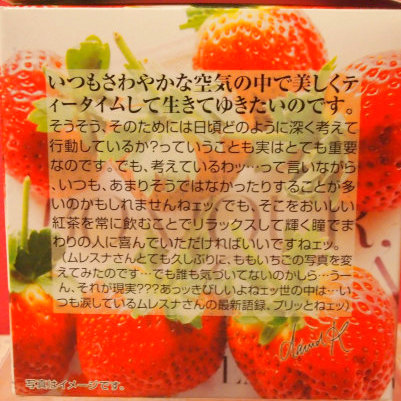 いつもさわやかな空気の中で美しくテ
ィータイムして生きてゆきたいのです。
そうそう、そのためには日頃どのように深く考えて
行動しているか?っていうことも実はとても重要
なのです。でも、考えているわッ…って言いながら
、いつも、あまりそうではなかったりすることが多
いのかもしれませんねェッ。でも、そこをおいしい
紅茶を常に飲むことでリラックスして輝く瞳でま
わりの人に喜んでいただければいいですねェッ。
(ムレスナさんとても久しぶりに、ももいちごの写真を変
えてみたのです…でも誰も気づいてないのかしら…うー
ん、それが現実???あっっきびしいよねェッ世の中は…い
つも涙しているムレスナさんの最新語録、プリッとねェッ)
David K
写真はイメージです。